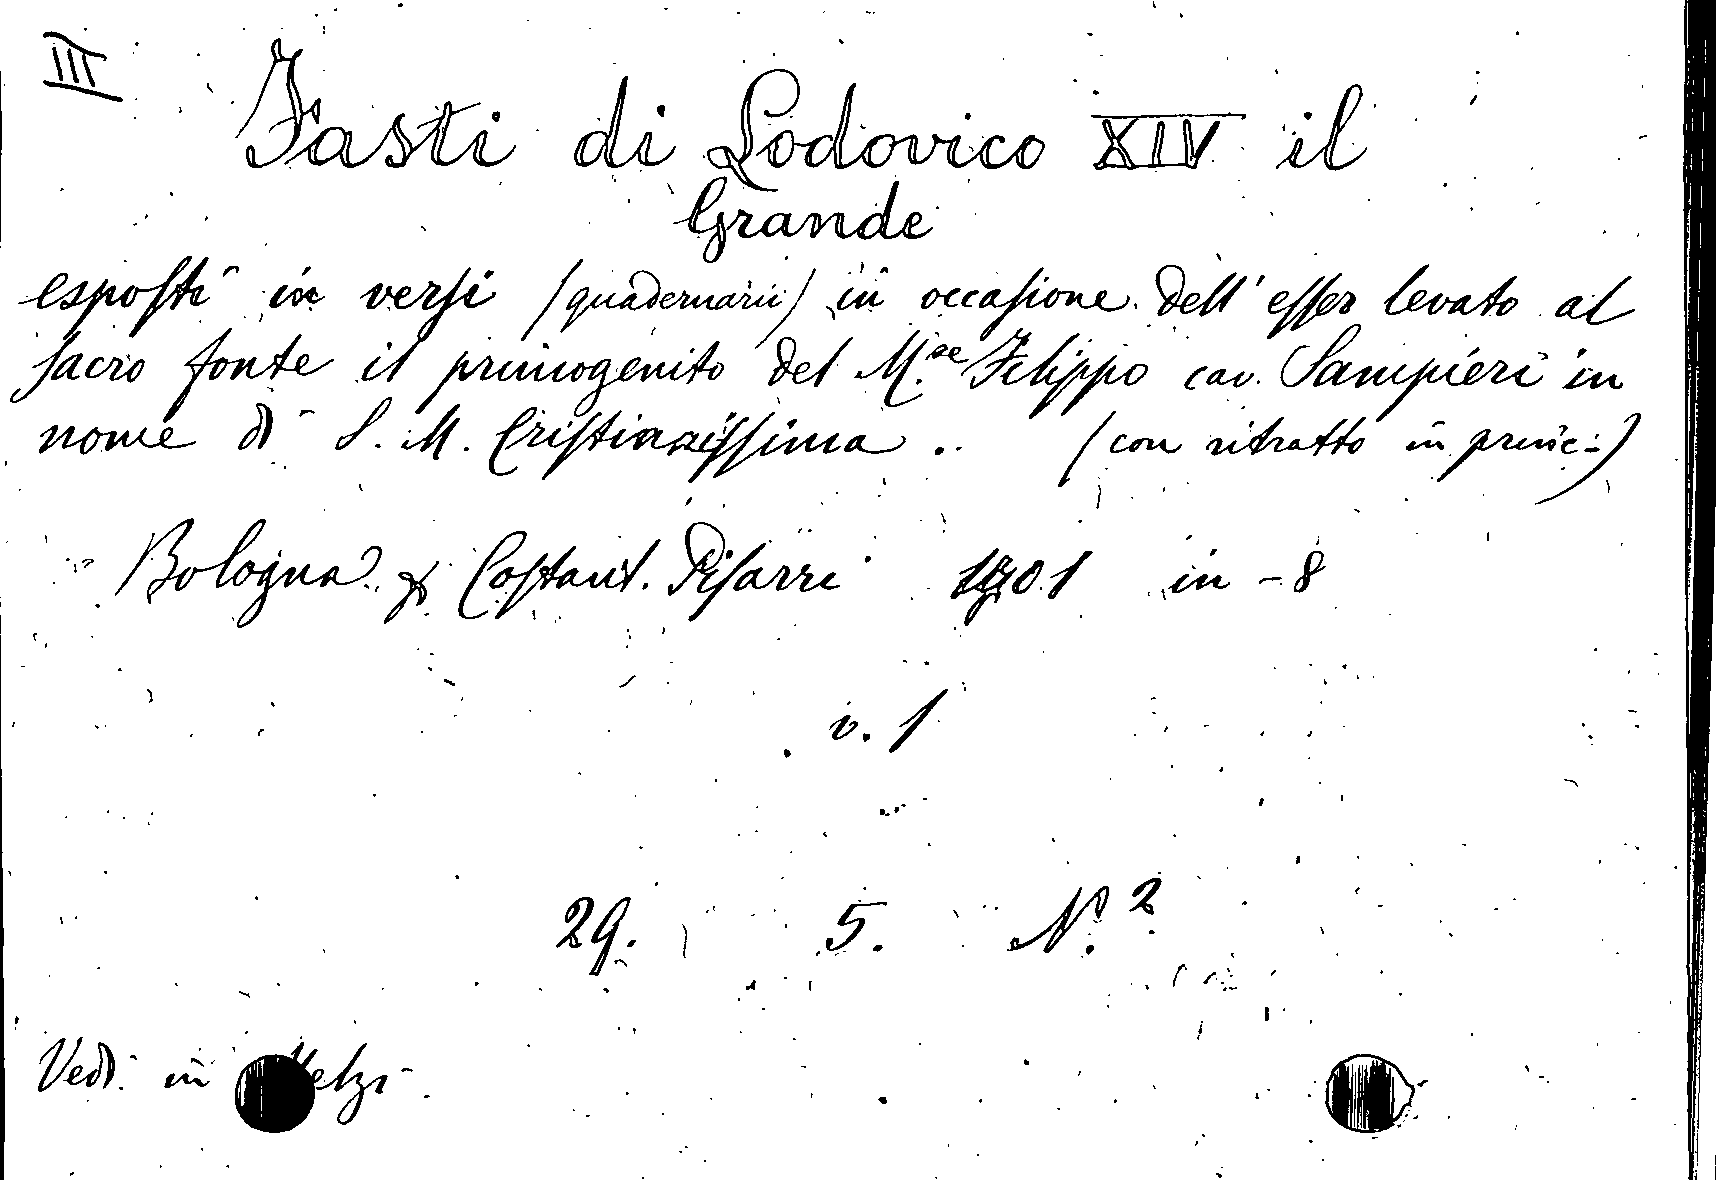 III
Fasti di Lodovico XIV il
Grande
esposti in versi (quadernarii) in occasione dell'esser levato al
sacro fonte il primogenito del M.se Filippo cav. Sampieri in
nome di S. M. Cristianissima .. (con ritratto in princ:)
Bologna Costant. Pisarri 1701 in-8
v. 1
29. 5. N.2
Vedi in Melzi